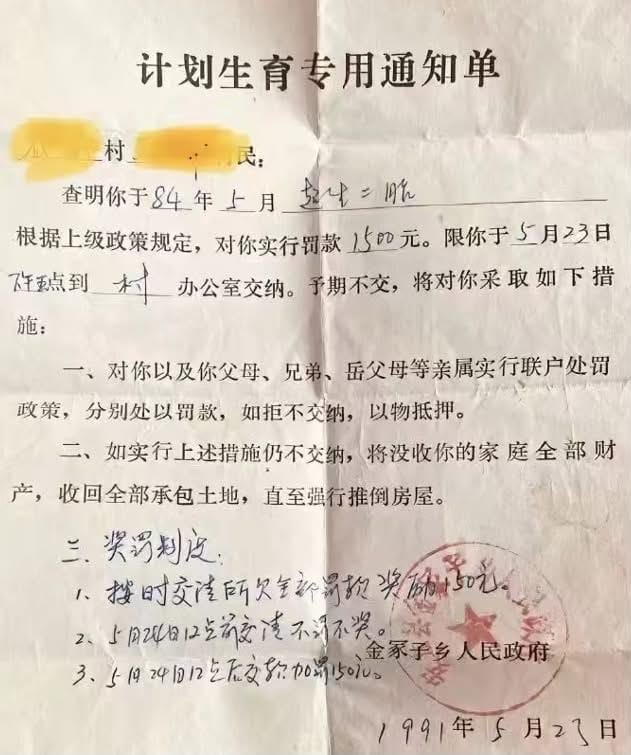 计划生育专用通知单
村 民：
查明你于84年5月 超生二胎
根据上级政策规定，对你实行罚款1500元。限你于5月23日
点到 村 办公室交纳。予期不交，将对你采取如下措
施：
一、对你以及你父母、兄弟、岳父母等亲属实行联户处罚
政策，分别处以罚款，如拒不交纳，以物抵押。
二、如实行上述措施仍不交纳，将没收你的家庭全部财
产，收回全部承包土地，直至强行推倒房屋。
三、奖罚制度：
1、按时交清所欠全部罚款奖励150元。
2、5月24日12点前交清不罚不奖。
3、5月24日12点后交款加罚150元。
金冢子乡人民政府
1991年5月23日